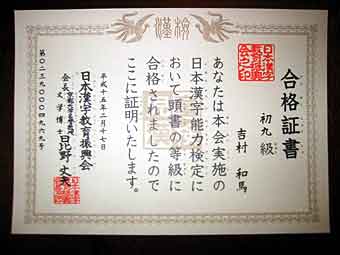 漢検
合格証書
初九級
吉村 和馬
あなたは本会実施の
日本漢字能力検定に
おいて頭書の等級に
合格されましたので
ここに証明いたします。
平成十五年二月十七日
日本漢字教育振興会
会長 文学博士 日比野丈夫